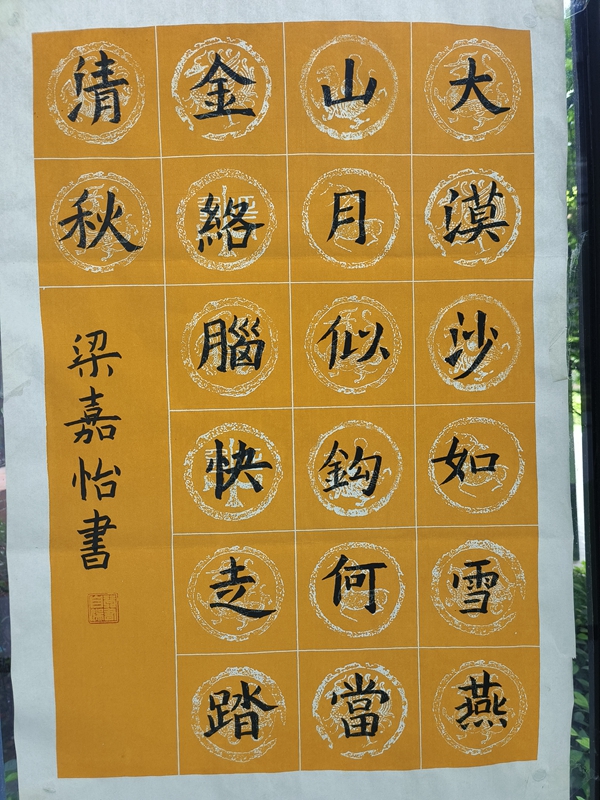 大漠沙如雪燕
山月似鈎何當
金絡腦快走踏
清秋
梁嘉怡書